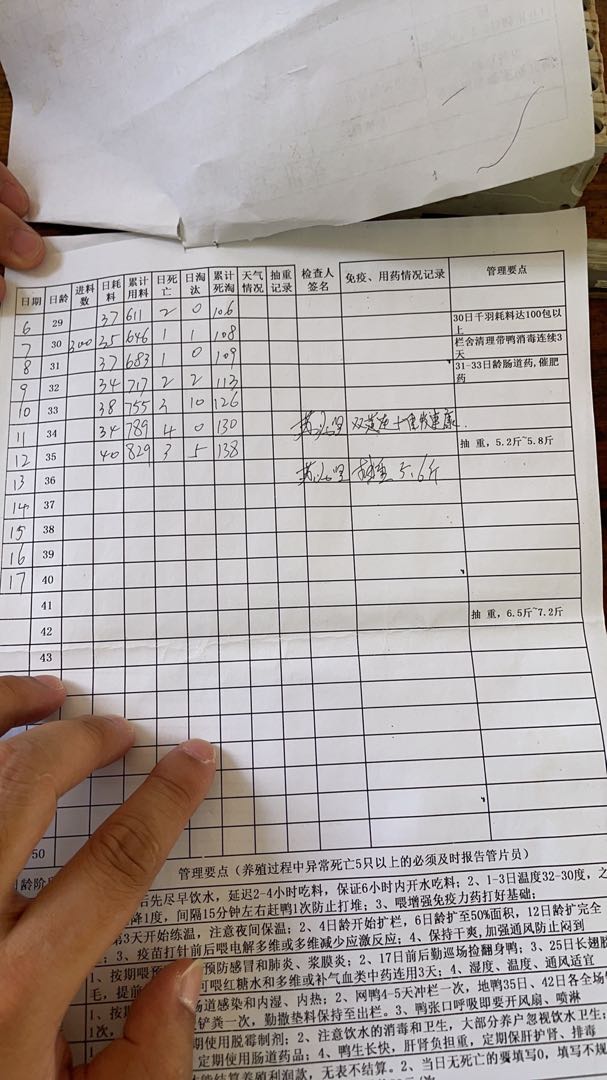 日期 日龄 进料数 日耗料 累计用料 日死亡 日淘汰 累计死淘 天气情况 抽重记录 检查人签名 免疫、用药情况记录 管理要点
6 29 37 611 2 0 106
7 30 300 35 646 1 1 108 30日千羽耗料达100包以上
8 31 37 683 1 0 109 栏舍清理带鸭消毒连续3天
9 32 34 717 2 2 113 31-33日龄肠道药,催肥药
10 33 38 755 3 10 126
11 34 34 789 4 0 130 双黄连十
12 35 40 829 3 5 138 抽 重,5.2斤~5.8斤
13 36 5.6斤
14 37
15 38
16 39
17 40
41
42 抽 重,6.5斤~7.2斤
43
50
管理要点(养殖过程中异常死亡5只以上的必须及时报告管片员)
后先尽早饮水,延迟2-4小时吃料,保证6小时内开水吃料;2、1-3日温度32-30度,之
降1度,间隔15分钟左右赶鸭1次防止打堆;3、喂增强免疫力药打好基础;
第3天开始练温,注意夜间保温;2、4日龄开始扩栏,6日龄扩至50%面积,12日龄扩完全
;3、疫苗打针前后喂电解多维或多维减少应激反应;4、保持干爽,加强通风防止闷到
1、按期喂预 预防感冒和肺炎、浆膜炎;2、17日前后勤巡场捡翻身鸭;3、25日长翅膀
毛,提前 可喂红糖水和多维或补气血类中药连用3天;4、湿度、温度、通风适宜
1、按 肠道感染和内湿、内热;2、网鸭4-5天冲栏一次,地鸭35日、42日各全场
1次, 铲粪一次,勤撒垫料保持至出栏。3、鸭张口呼吸即要开风扇、喷淋
期使用脱霉制剂;2、注意饮水的消毒和卫生,大部分养户忽视饮水卫生;
定期使用肠道药品;4、鸭生长快,肝肾负担重,定期保肝护肾、排毒
能结算养殖利润款,无表不结算。2、当日无死亡的要填写0,填写不规